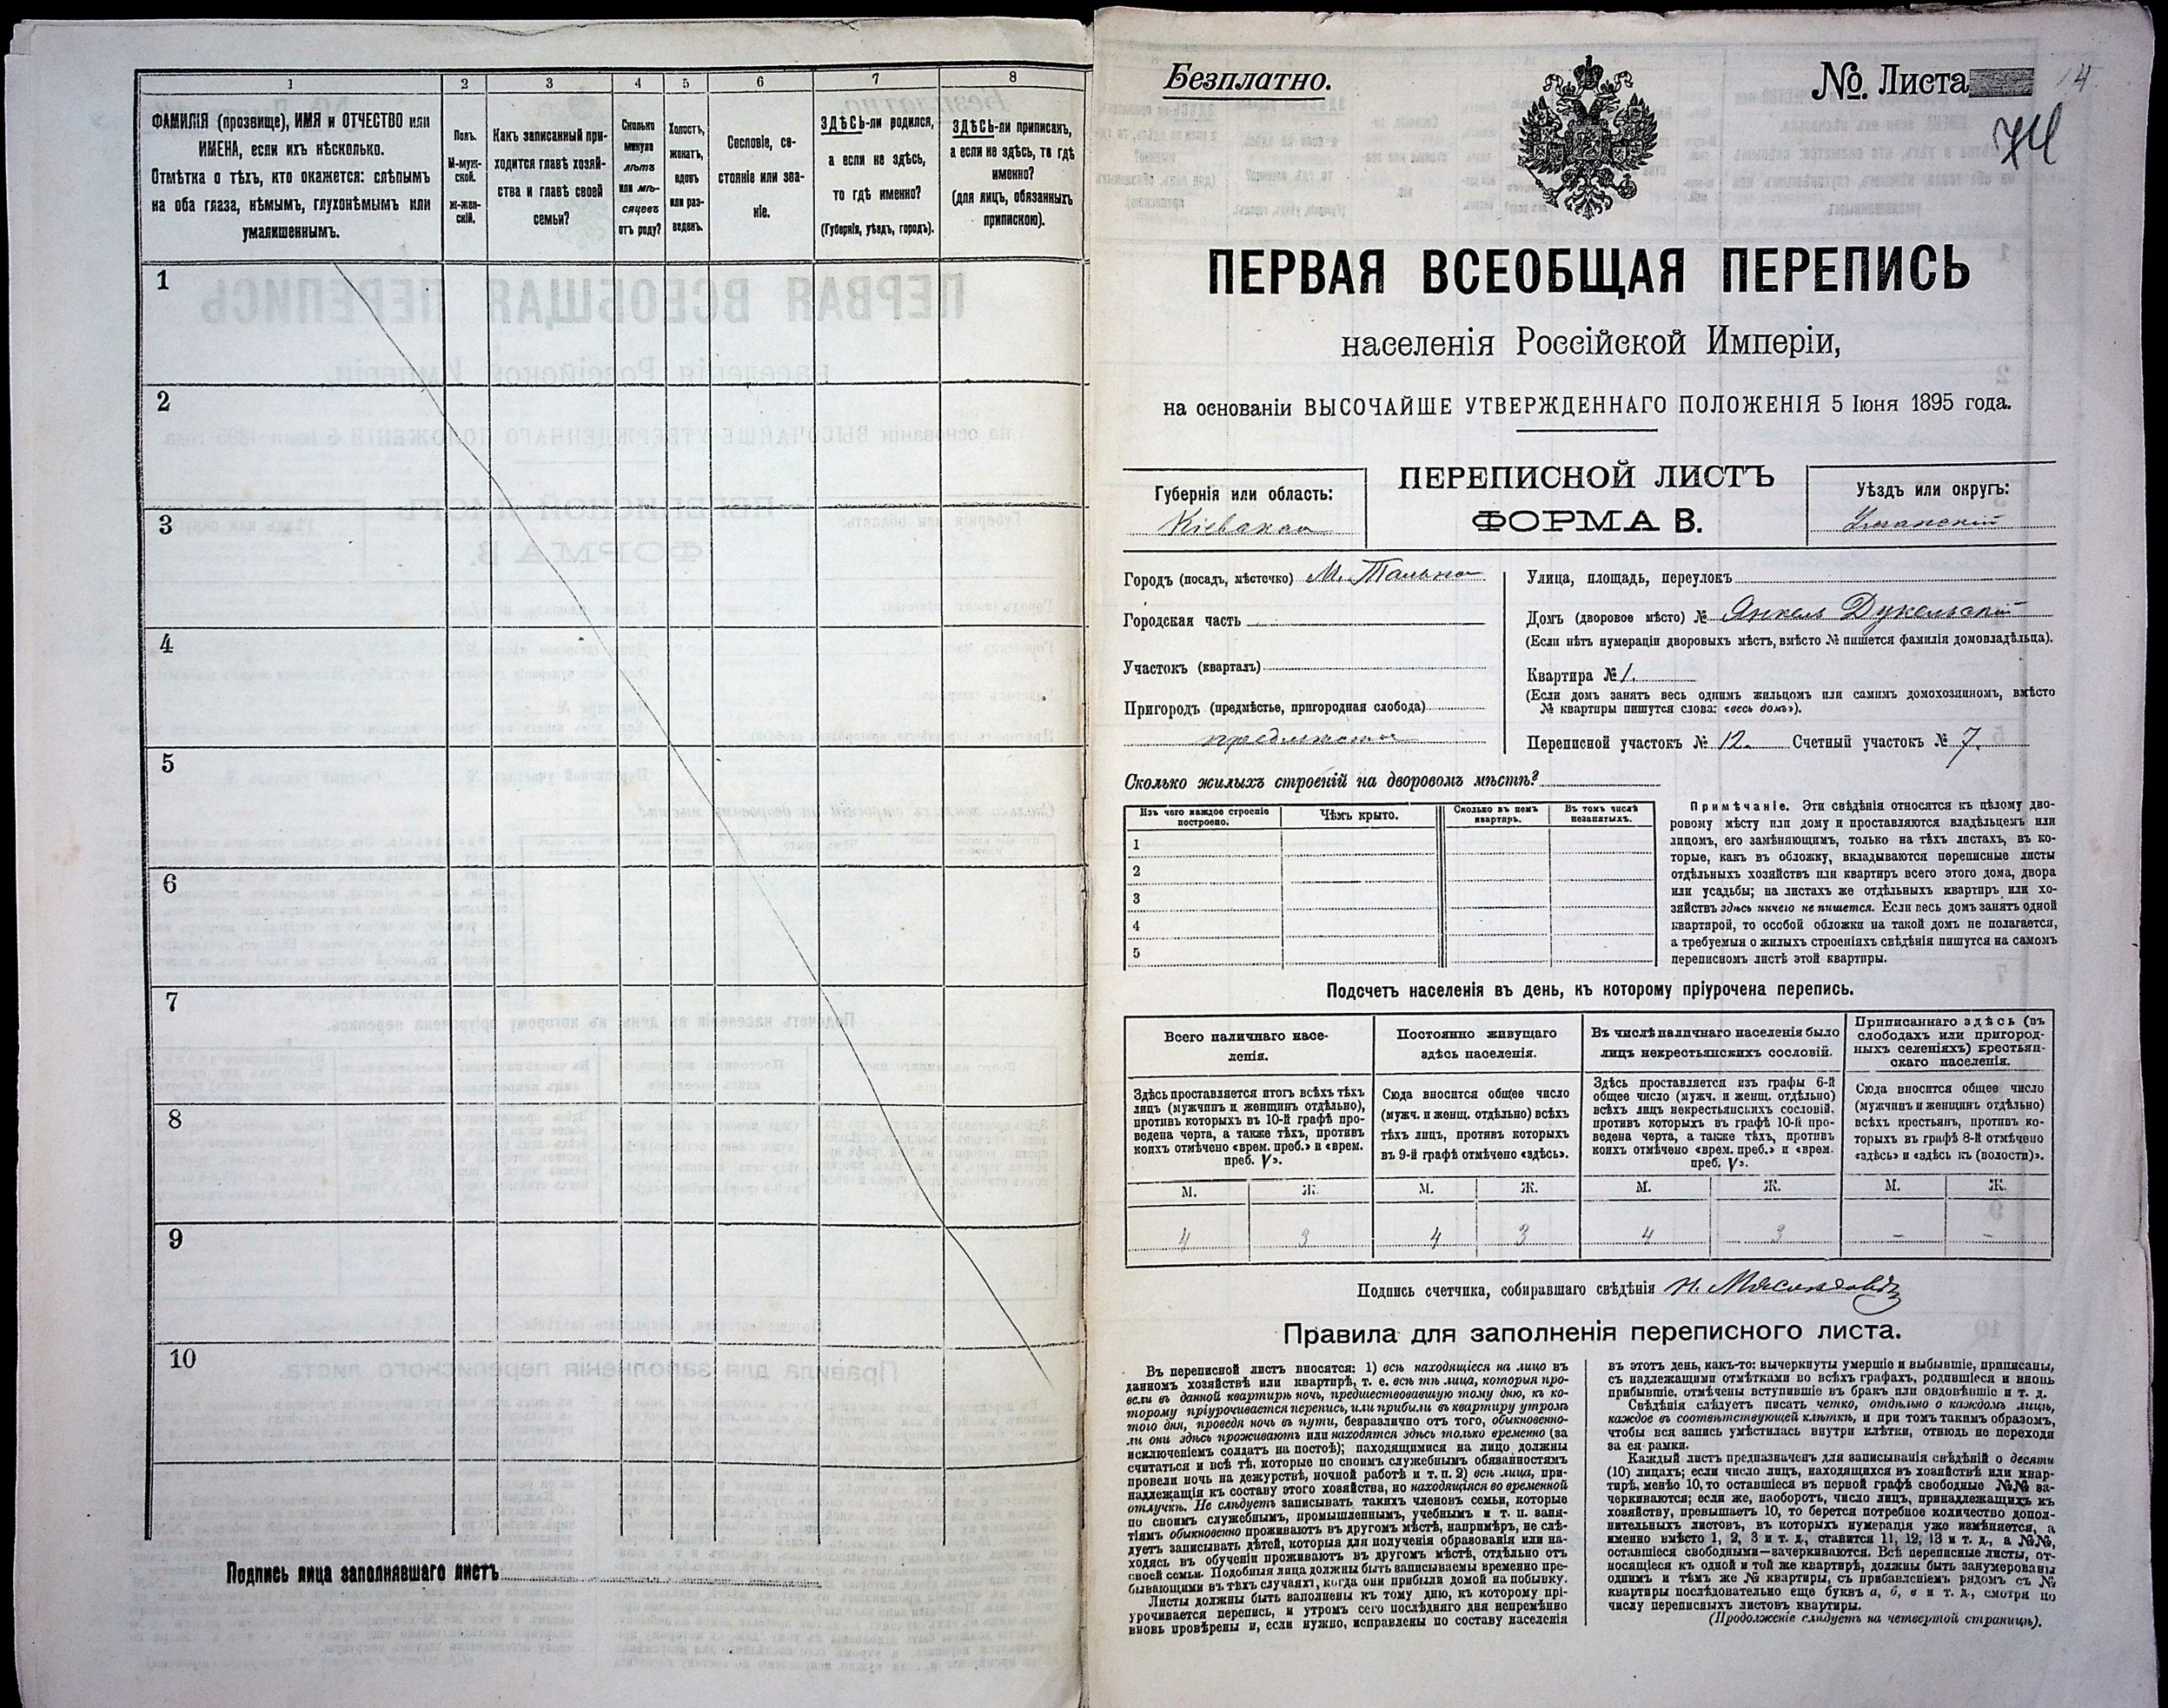 1 2 3 4 5 6 7 8
ФАМИЛІЯ (прозвище), ИМЯ и ОТЧЕСТВО или
ИМЕНА, если ихъ нѣсколько.
Отмѣтка о тѣхъ, кто окажется: слѣпымъ
на оба глаза, нѣмымъ, глухонѣмымъ или
умалишеннымъ.
Полъ.
М-муж-
ской.
ж-жен-
скій.
Какъ записанный при-
ходится главѣ хозяй-
ства и главѣ своей
семьи?
Сколько
минуло
лѣтъ
или мѣ-
сяцевъ
отъ роду?
Холостъ,
женатъ,
вдовъ
или раз-
веденъ.
Сословіе, со-
стояніе или зва-
ніе.
ЗДѢСЬ-ли родился,
а если не здѣсь,
то гдѣ именно?
(Губернія, уѣздъ, городъ).
ЗДѢСЬ-ли приписанъ,
а если не здѣсь, то гдѣ
именно?
(для лицъ, обязанныхъ
припискою).
1
2
3
4
5
6
7
8
9
10
Подпись лица заполнявшаго листъ
Безплатно.
№. Листа
14
74
ПЕРВАЯ ВСЕОБЩАЯ ПЕРЕПИСЬ
населенія Россійской Имперіи,
на основаніи ВЫСОЧАЙШЕ УТВЕРЖДЕННАГО ПОЛОЖЕНІЯ 5 Іюня 1895 года.
Губернія или область:
Кіевская
ПЕРЕПИСНОЙ ЛИСТЪ
ФОРМА В.
Уѣздъ или округъ:
Уманскій
Городъ (посадъ, мѣстечко) М. Тальное
Городская часть
Участокъ (кварталъ)
Пригородъ (предмѣстье, пригородная слобода)
предмѣстье
Улица, площадь, переулокъ
Домъ (дворовое мѣсто) № Янкель Дукельскій
(Если нѣтъ нумераціи дворовыхъ мѣстъ, вмѣсто № пишется фамилія домовладѣльца).
Квартира № 1.
(Если домъ занятъ весь однимъ жильцомъ или самимъ домохозяиномъ, вмѣсто
№ квартиры пишутся слова: «весь домъ»).
Переписной участокъ № 12. Счетный участокъ № 7.
Сколько жилыхъ строеній на дворовомъ мѣстѣ?
Изъ чего каждое строеніе
построено.
Чѣмъ крыто.
Сколько въ немъ
квартиръ.
Въ томъ числѣ
незанятыхъ.
1
2
3
4
5
Примѣчаніе. Эти свѣдѣнія относятся къ цѣлому дво-
ровому мѣсту или дому и проставляются владѣльцемъ или
лицомъ, его замѣняющимъ, только на тѣхъ листахъ, въ ко-
торые, какъ въ обложку, вкладываются переписные листы
отдѣльныхъ хозяйствъ или квартиръ всего этого дома, двора
или усадьбы; на листахъ же отдѣльныхъ квартиръ или хо-
зяйствъ здѣсь ничего не пишется. Если весь домъ занятъ одной
квартирой, то особой обложки на такой домъ не полагается,
а требуемыя о жилыхъ строеніяхъ свѣдѣнія пишутся на самомъ
переписномъ листѣ этой квартиры.
Подсчетъ населенія въ день, къ которому пріурочена перепись.
Всего наличнаго насе-
ленія.
Постоянно живущаго
здѣсь населенія.
Въ числѣ наличнаго населенія было
лицъ некрестьянскихъ сословій.
Приписаннаго здѣсь (въ
слободахъ или пригород-
ныхъ селеніяхъ) крестьян-
скаго населенія.
Здѣсь проставляется итогъ всѣхъ тѣхъ
лицъ (мужчинъ и женщинъ отдѣльно),
противъ которыхъ въ 10-й графѣ про-
ведена черта, а также тѣхъ, противъ
коихъ отмѣчено «врем. преб.» и «врем.
преб. V».
Сюда вносится общее число
(мужч. и женщ. отдѣльно) всѣхъ
тѣхъ лицъ, противъ которыхъ
въ 9-й графѣ отмѣчено «здѣсь».
Здѣсь проставляется изъ графы 6-й
общее число (мужч. и женщ. отдѣльно)
всѣхъ лицъ некрестьянскихъ сословій,
противъ которыхъ въ графѣ 10-й про-
ведена черта, а также тѣхъ, противъ
коихъ отмѣчено «врем. преб.» и «врем.
преб. V».
Сюда вносится общее число
(мужчинъ и женщинъ отдѣльно)
всѣхъ крестьянъ, противъ ко-
торыхъ въ графѣ 8-й отмѣчено
«здѣсь» и «здѣсь къ (волости)».
М. Ж. М. Ж. М. Ж. М. Ж.
4 3 4 3 4 3 - -
Подпись счетчика, собиравшаго свѣдѣнія
Правила для заполненія переписного листа.
Въ переписной листъ вносятся: 1) всѣ находящіеся на лицо въ
данномъ хозяйствѣ или квартирѣ, т. е. всѣ тѣ лица, которыя про-
вели въ данной квартирѣ ночь, предшествовавшую тому дню, къ ко-
торому пріурочивается перепись, или прибыли въ квартиру утромъ
того дня, проведя ночь въ пути, безразлично отъ того, обыкновенно-
ли они здѣсь проживаютъ или находятся здѣсь только временно (за
исключеніемъ солдатъ на постоѣ); находящимися на лицо должны
считаться и всѣ тѣ, которые по своимъ служебнымъ обязанностямъ
провели ночь на дежурствѣ, ночной работѣ и т. п. 2) всѣ лица, при-
надлежащія къ составу этого хозяйства, но находящіяся во временной
отлучкѣ. Не слѣдуетъ записывать такихъ членовъ семьи, которые
по своимъ служебнымъ, промышленнымъ, учебнымъ и т. п. заня-
тіямъ обыкновенно проживаютъ въ другомъ мѣстѣ, напримѣръ, не слѣ-
дуетъ записывать дѣтей, которыя для полученія образованія или на-
ходясь въ обученіи проживаютъ въ другомъ мѣстѣ, отдѣльно отъ
своей семьи. Подобныя лица должны быть записываемы временно пре-
бывающими въ тѣхъ случаяхъ, когда они прибыли домой на побывку.
Листы должны быть заполнены къ тому дню, къ которому прі-
урочивается перепись, и утромъ сего послѣдняго дня непремѣнно
вновь провѣрены и, если нужно, исправлены по составу населенія
въ этотъ день, какъ-то: вычеркнуты умершіе и выбывшіе, приписаны,
съ надлежащими отмѣтками во всѣхъ графахъ, родившіеся и вновь
прибывшіе, отмѣчены вступившіе въ бракъ или овдовѣвшіе и т. д.
Свѣдѣнія слѣдуетъ писать четко, отдѣльно о каждомъ лицѣ,
каждое въ соотвѣтствующей клѣткѣ, и при томъ такимъ образомъ,
чтобы вся запись умѣстилась внутри клѣтки, отнюдь не переходя
за ея рамки.
Каждый листъ предназначенъ для записыванія свѣдѣній о десяти
(10) лицахъ; если число лицъ, находящихся въ хозяйствѣ или квар-
тирѣ, менѣе 10, то оставшіеся въ первой графѣ свободные №№ за-
черкиваются; если же, наоборотъ, число лицъ, принадлежащихъ къ
хозяйству, превышаетъ 10, то берется потребное количество допол-
нительныхъ листовъ, въ которыхъ нумерація уже измѣняется, а
именно вмѣсто 1, 2, 3 и т. д., ставится 11, 12, 13 и т. д., а №№,
оставшіеся свободными—зачеркиваются. Всѣ переписные листы, от-
носящіеся къ одной и той же квартирѣ, должны быть занумерованы
однимъ и тѣмъ же № квартиры, съ прибавленіемъ рядомъ съ №
квартиры послѣдовательно еще буквъ а, б, в и т. д., смотря по
числу переписныхъ листовъ квартиры.
(Продолженіе слѣдуетъ на четвертой страницѣ).